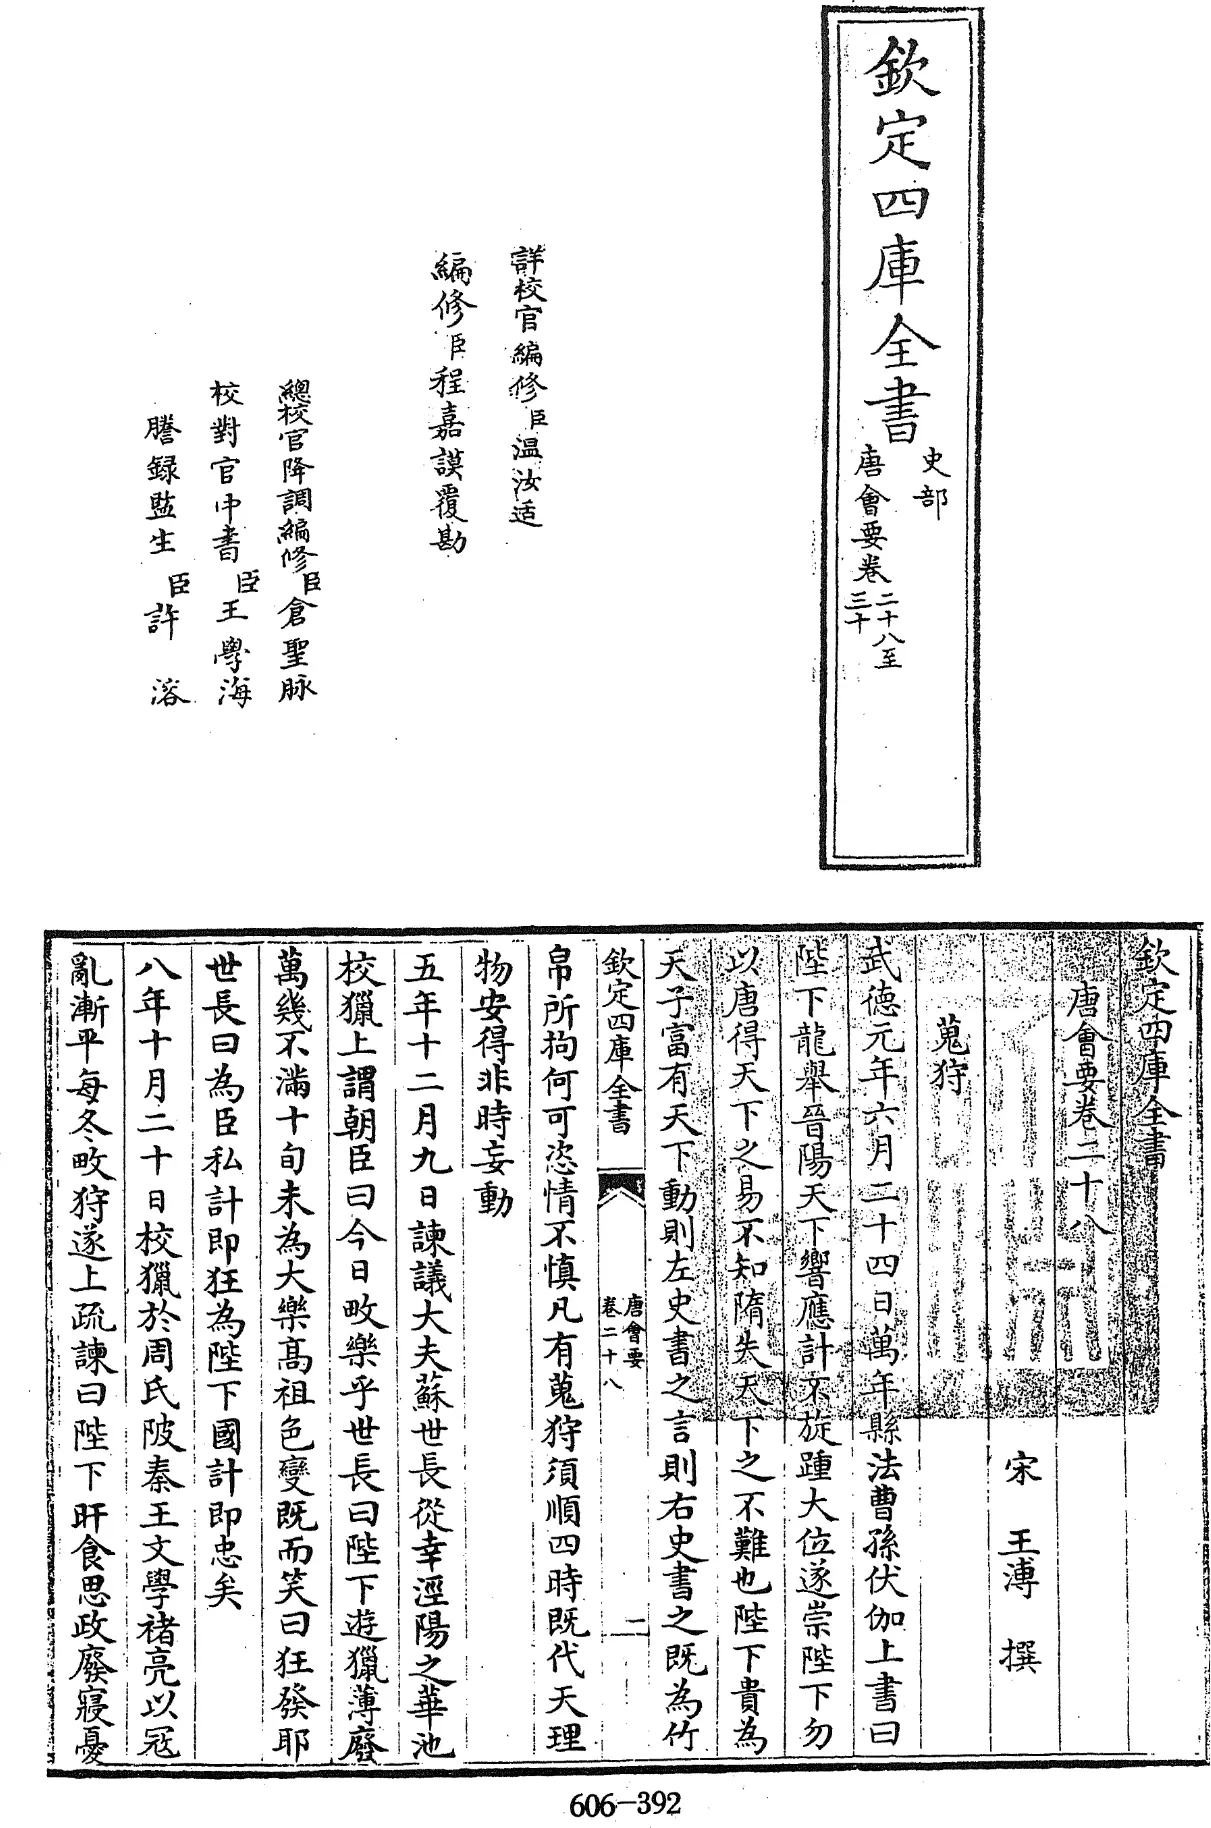 欽定四庫全書
史部
唐會要卷二十八至三十
詳校官編修臣溫汝适
編修臣程嘉謨覆勘
總校官降調編修臣倉聖脉
校對官中書臣王學海
謄録監生臣許溶
欽定四庫全書
唐會要卷二十八
宋 王溥 撰
蒐狩
武德元年六月二十四日萬年縣法曹孫伏伽上書曰
陛下龍舉晉陽天下響應計不旋踵大位遂崇陛下勿
以唐得天下之易不知隋失天下之不難也陛下貴為
天子富有天下動則左史書之言則右史書之既為竹
欽定四庫全書
唐會要
卷二十八
一
帛所拘何可恣情不慎凡有蒐狩須順四時既代天理
物安得非時妄動
五年十二月九日諫議大夫蘇世長從幸涇陽之華池
校獵上謂朝臣曰今日畋樂乎世長曰陛下遊獵薄廢
萬幾不滿十旬未為大樂髙祖色變既而笑曰狂發耶
世長曰為臣私計即狂為陛下國計即忠矣
八年十月二十日校獵於周氏陂秦王文學褚亮以冦
亂漸平每冬畋狩遂上疏諫曰陛下旰食思政廢寢憂
606-392